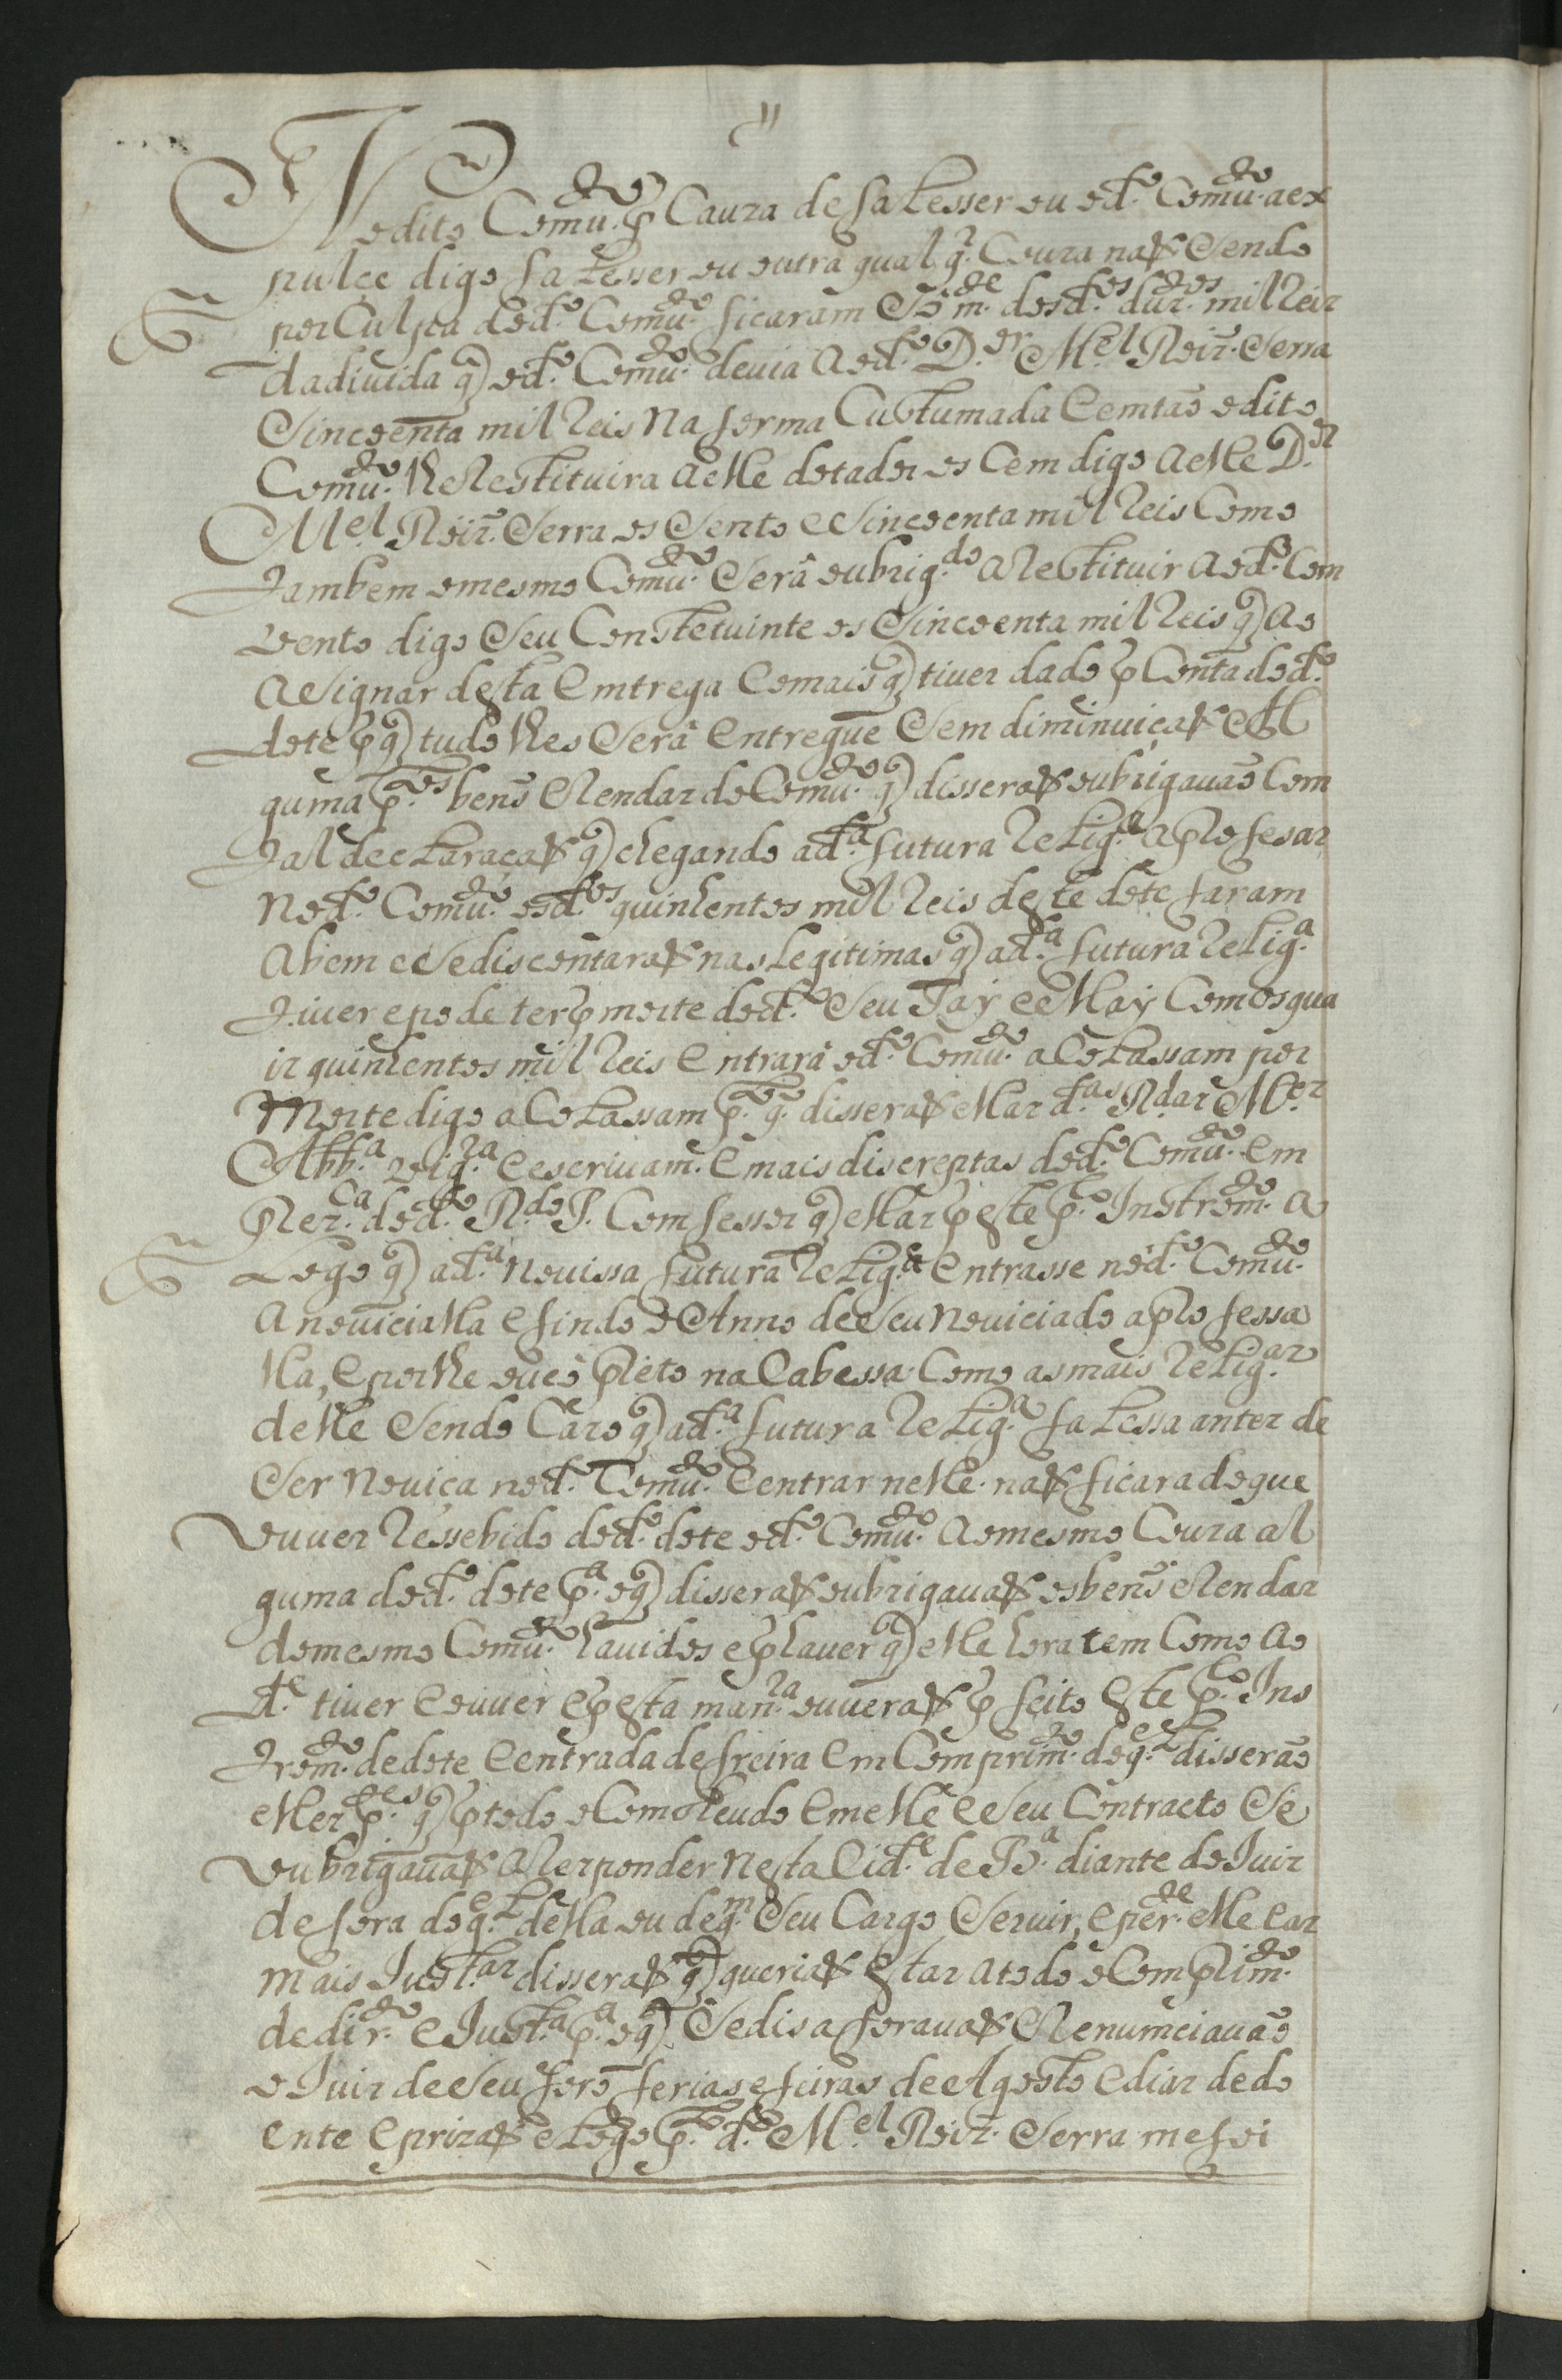 N edito Comu.to p Cauza de falesser ou od.to Comu.to aex
pulçe digo falesser ou outra qual q.r Couza naõ Sendo
por Culpa dod.to Comu.to ficaram Só m.te dosd.tos duz.tos mil Reis
dadiuida q od.to Comu.to deuia Aod.to D.or M.el Roiz. Serra
Sincoenta mil Reis Na forma Custumada Comtaõ odito
Comu.to lhe Restituira aelle dotador os Cem digo Aelle D.or
M.el Roiz. Serra os Sento eSincoenta mil Reis Como
Tambem omesmo Comu.to Será oubrig.do aRestituir Aod.to Com
Vento digo Seu Constetuinte os Sincoenta mil Reis q Ao
aSignar desta Emtrega Eomais q tiuer dado p Conta dod.to
dote p q tudo lhes Será Entregue Sem diminuiçaõ Al
guma p.a os bens eRendas do Comu.to q disseraõ oubrigauaõ Com
Tal declaraçaõ q chegando ad.ta futura Relig.a aprofesar
Nod.to Comu.to osd.tos quinhentos mil Reis deste dote faram
Abem eSediscontaraõ nas Legitimas q ad.ta futura Relig.a
Tiuer epode ter p morte dod.to Seu Pay eMay Com os qua
is quinhentos mil Reis Entrará od.to Comu.to aColassam por
Morte digo aColassam p.to q. disseraõ ellas d.tas R.das M.es
Abb.a Vig.ra Eescriuam. Emais discreptas dod.to Comu.to Em
Prez.ca dod.to R.do P. Comfessor q ellas p este p.co Instrom.to a
Logo q ad.ta Nouissa futura Relig.a Entrasse nod.to Comu.to
A nouicialla Efindo o Anno deSeu Nouiciado aprofessa
lla, Eporlhe oueo preto na Cabessa. Como as mais Relig.as
delle Sendo Cazo q ad.ta futura Relig.a falessa antes de
Ser Nouiça nod.to Comu.to Eentrar nelle. naõ ficara do que
ouuer Ressebido dod.to dote od.to Comu.to Aomesmo Couza al
guma dod.to dote p.a oq disseraõ oubrigauaõ os bens eRendas
domesmo Comu.to hauidos ep hauer q elle hora tem Como Ao
d.te tiuer Eouuer Ep esta man.ra ouueraõ p feito Este p.co Ins
Trom.to dedote Eentrada defreira Em Comprim.to do q.al disseraõ
elles p.tes q p todo o Comtheudo Emelle eSeu Contracto Se
oubrigauaõ aResponder Nesta Cid.e de B.a diante do Iuiz
defora do q.al della ou deq.m Seu Cargo Seruir, Eper.te elle Eas
mais Iust.as disseraõ q queriaõ Estar atodo o Comprim.to
dedir.to Eiust.a p.a oq Sedisaforauaõ eRenumciauaõ
o Iuiz deSeu foro feriase feiras de Agosto Edias dedo
ente Eprizaõ e Logo p.to d.to M.el Roiz. Serra me foi